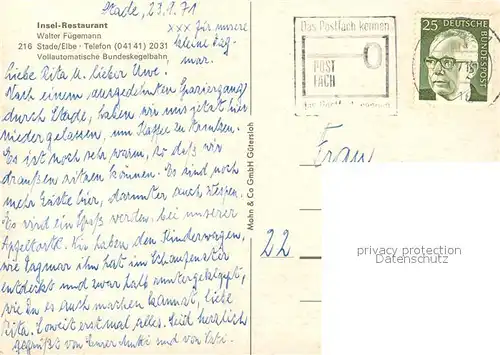 Stade, 23.8.71
Insel-Restaurant
Walter Fügemann
216 Stade/Elbe · Telefon (04141) 2031
Vollautomatische Bundeskegelbahn
xxx für unsere
kleine Dag-
mar.
Liebe Rita u. lieber Uwe.
Nach einem ausgedehnten Spaziergang
durch Stade, haben wir uns jetzt hier
niedergelassen, um Kaffee zu trinken.
Es ist noch sehr warm, so daß wir
draußen sitzen können. Es sind noch
mehr Gäste hier, darunter auch Wespen.
Es wird ein Spaß werden, bei unserer
Apfeltorte. Wir haben den Kinderwagen,
wie Dagmar ihn hat im Schaufenster
entdeckt und zwar halb runtergeklappt,
wie Du es auch machen kannst, liebe
Rita. Soweit erst mal alles. Seid herzlich
gegrüßt von Eurer Mutti und von Vati.
Mohn & Co GmbH Gütersloh
Das Postfach kennen
POST
FACH
das Postfach nennen
25 DEUTSCHE
BUNDESPOST
Frau
22
privacy protection
Datenschutz